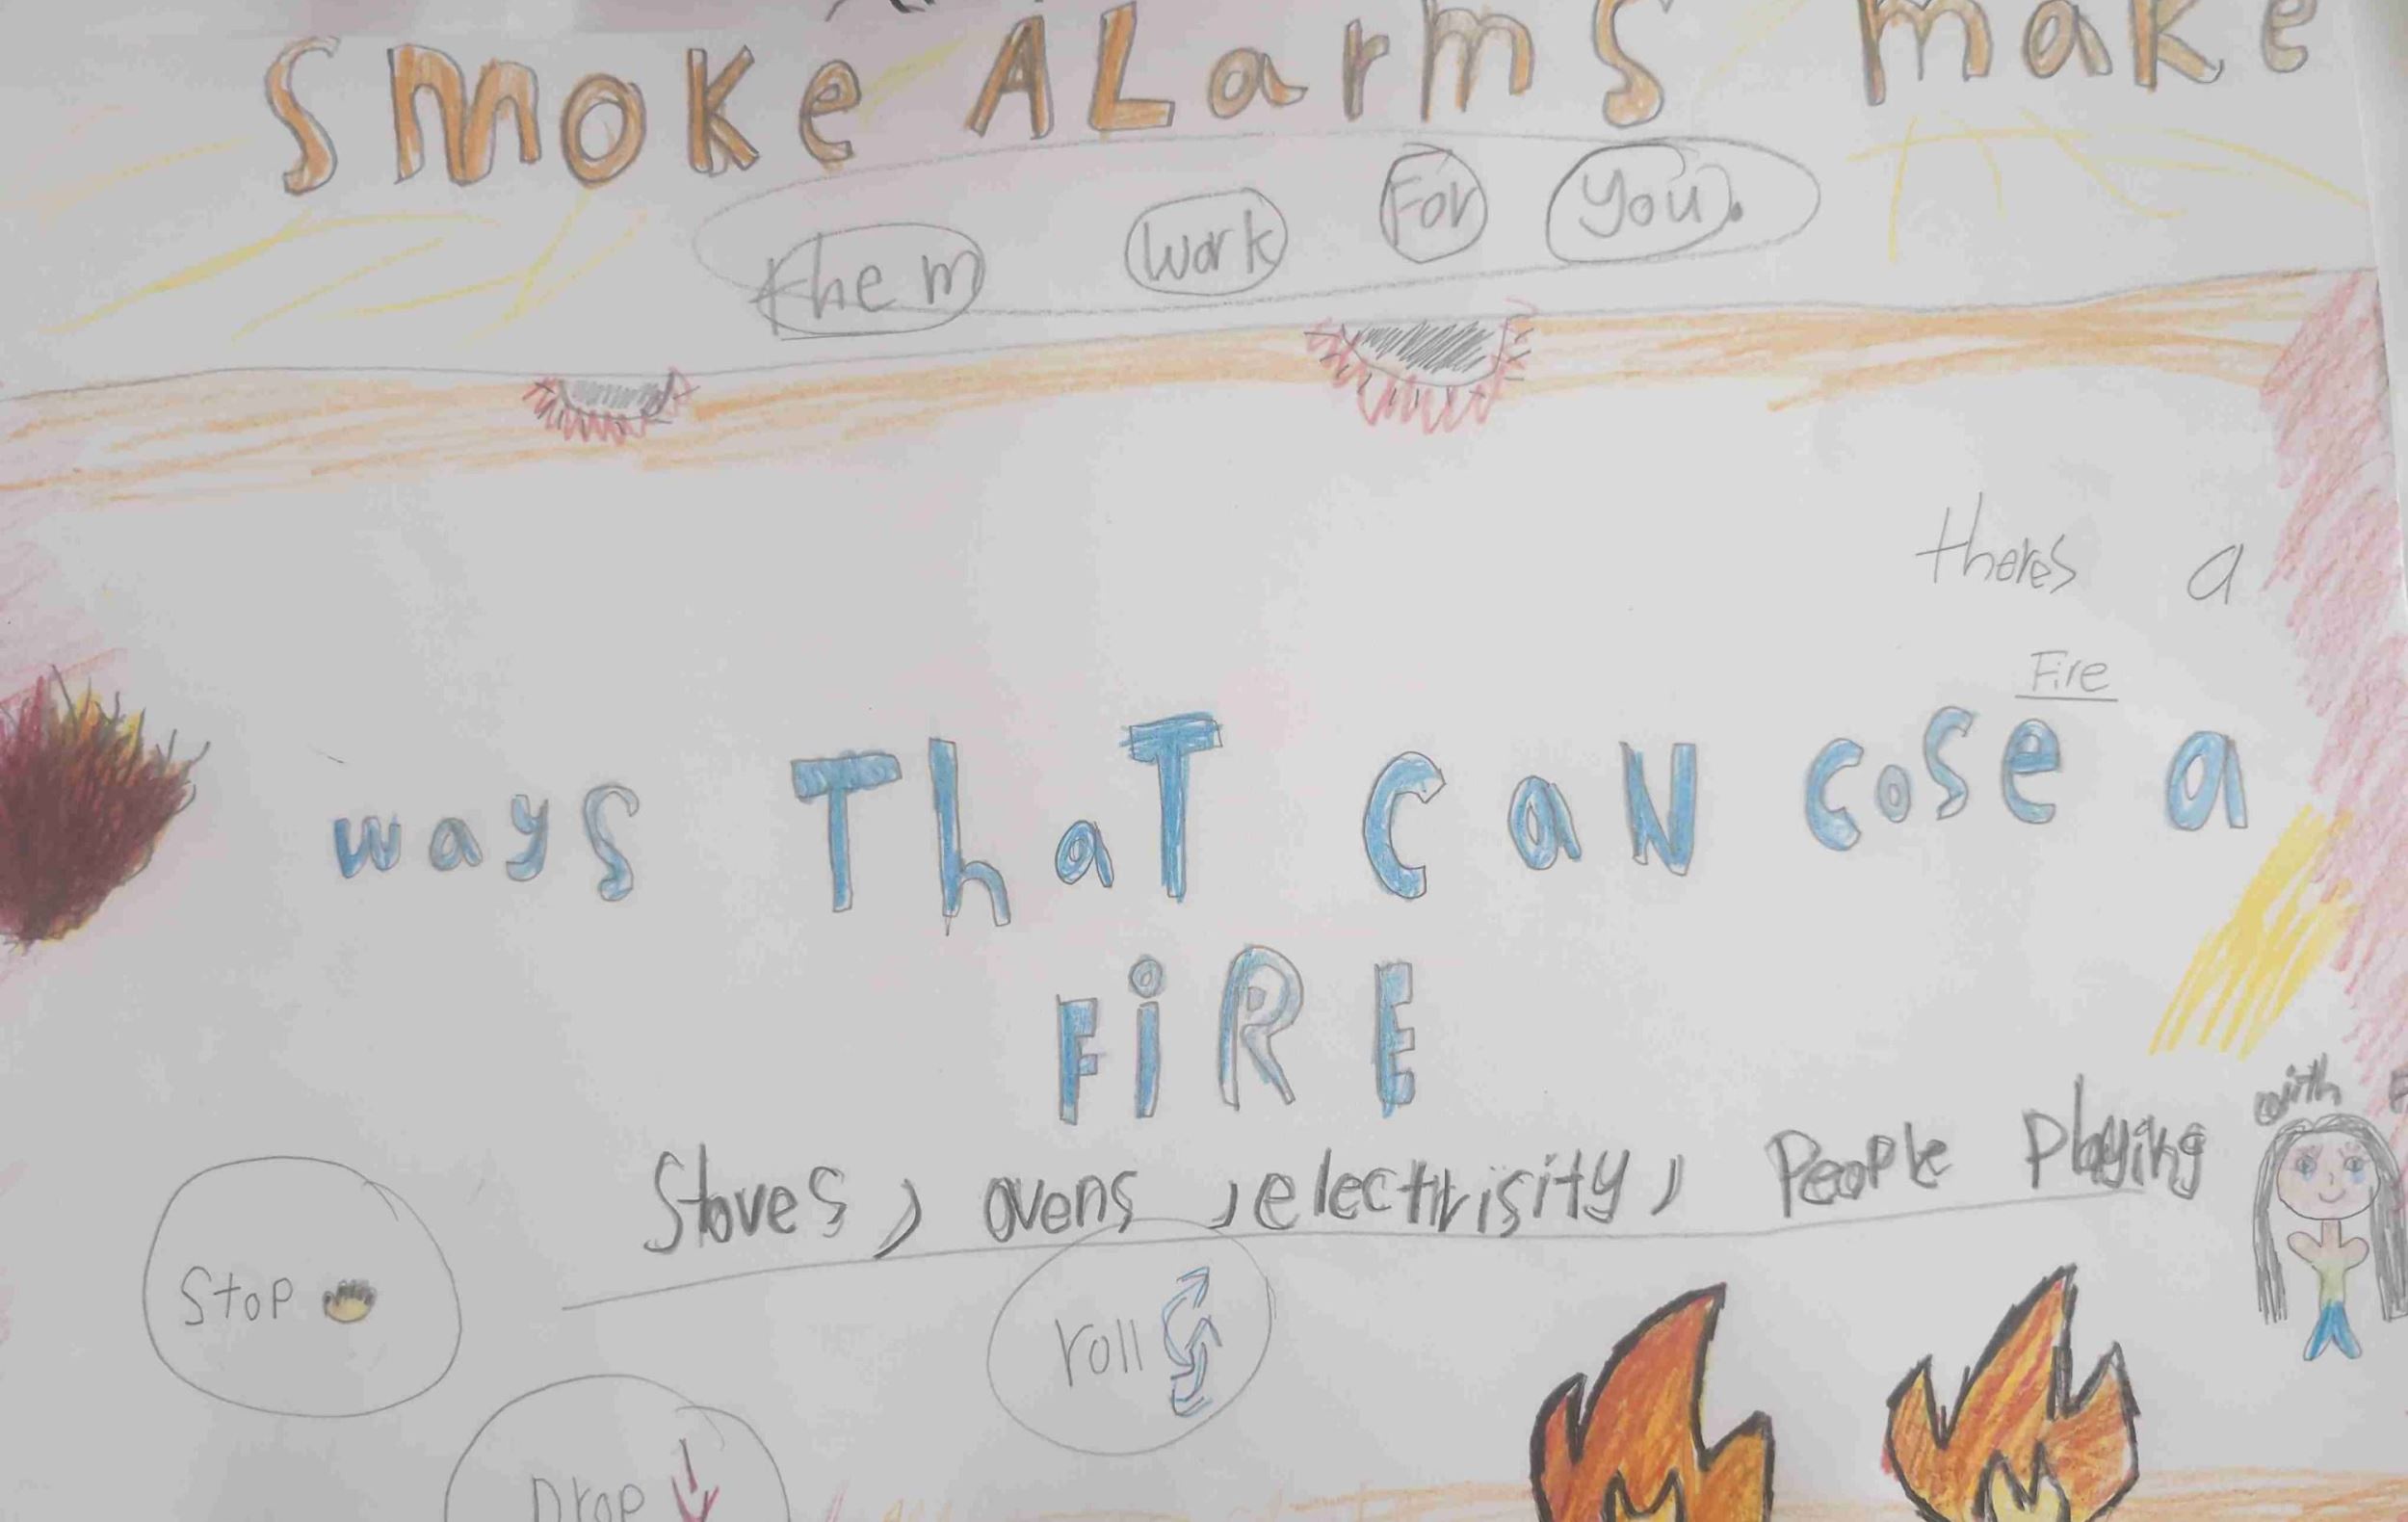 Smoke ALarms make
them work For you.
theres a
Fire
ways ThaT CaN cose a
FiRE
Stoves, ovens, electrisity, People Playing with
Stop
roll
Drop